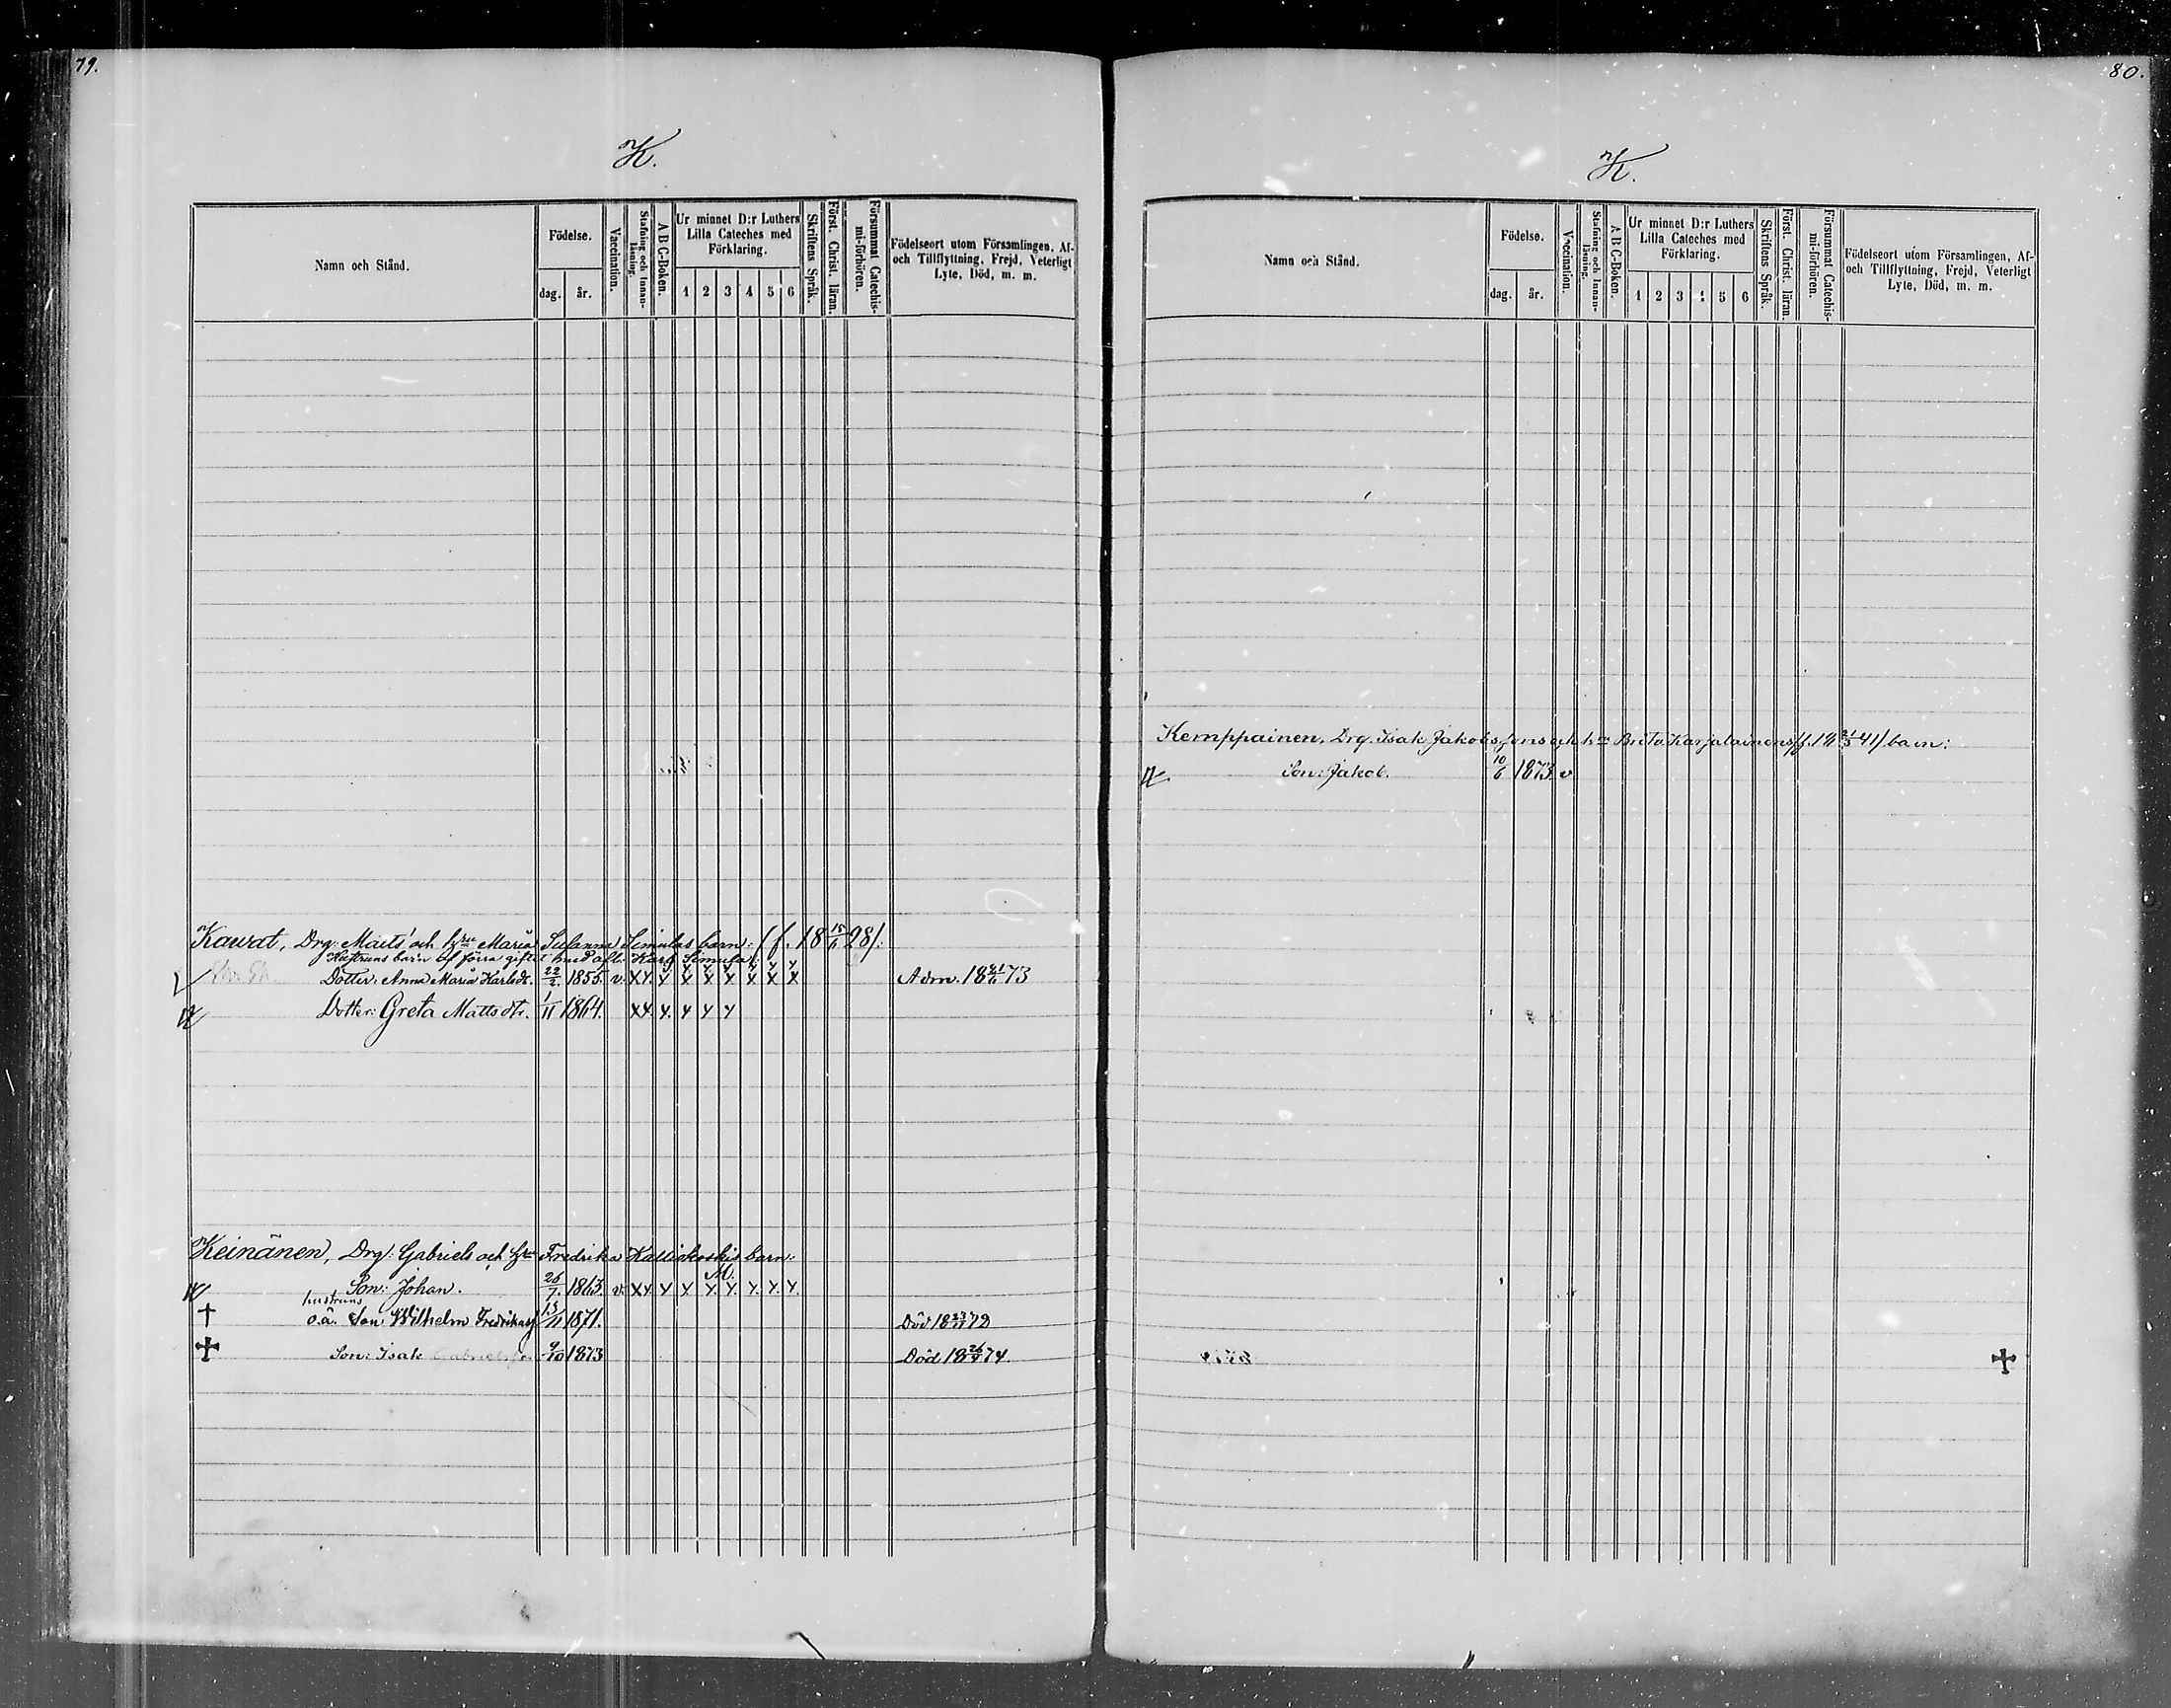 79.
K.
Namn och Stånd.
Födelse.
dag.
år.
Vaccination.
Stafning och Innan-
läsning.
A B C-Boken.
Ur minnet D:r Luthers
Lilla Cateches med
Förklaring.
1 2 3 4 5 6
Skriftens Språk.
Först. Christ. läran.
Försummat Catechis-
mi-förhören.
Födelseort utom Församlingen, Af-
och Tillflyttning, Frejd, Veterligt
Lyte, Död, m. m.
Kawat, Drg: Matts' och Hru Maria Susanna Simulas barn: (f. 18 15/6 28/:
Hustruns barn af förra giftet med afl. Karl Simula:
Dotter: Anna Maria Karlsdr. 22/2. 1855. v. XY. Y X X X X X X Adm. 18 21/6 73
Dotter: Greta Mattsdtr. 1/11 1864. XY. Y. Y Y Y
Keinänen, Drg: Gabriels och Hru Fredrika Kalliokoskis barn:
M.
Son: Johan. 26/7. 1863. v. XY. Y X Y. Y. Y. Y. Y.
hustruns
o.ä. Son: Wilhelm Fredrikass. 13/11 1871. Död 18 23/11 72
Son: Isak 9/10 1873 Död 18 26/4 74.
80.
K.
Namn och Stånd.
Födelse.
dag.
år.
Vaccination.
Stafning och Innan-
läsning.
A B C-Boken.
Ur minnet D:r Luthers
Lilla Cateches med
Förklaring.
1 2 3 4 5 6
Skriftens Språk.
Först. Christ. läran.
Försummat Catechis-
mi-förhören.
Födelseort utom Församlingen, Af-
och Tillflyttning, Frejd, Veterligt
Lyte, Död, m. m.
Kemppainen, Drg. Isak Jakobssons och h:ru Brita Karjalainens barn:
Son: Jakob. 10/6 1873 v